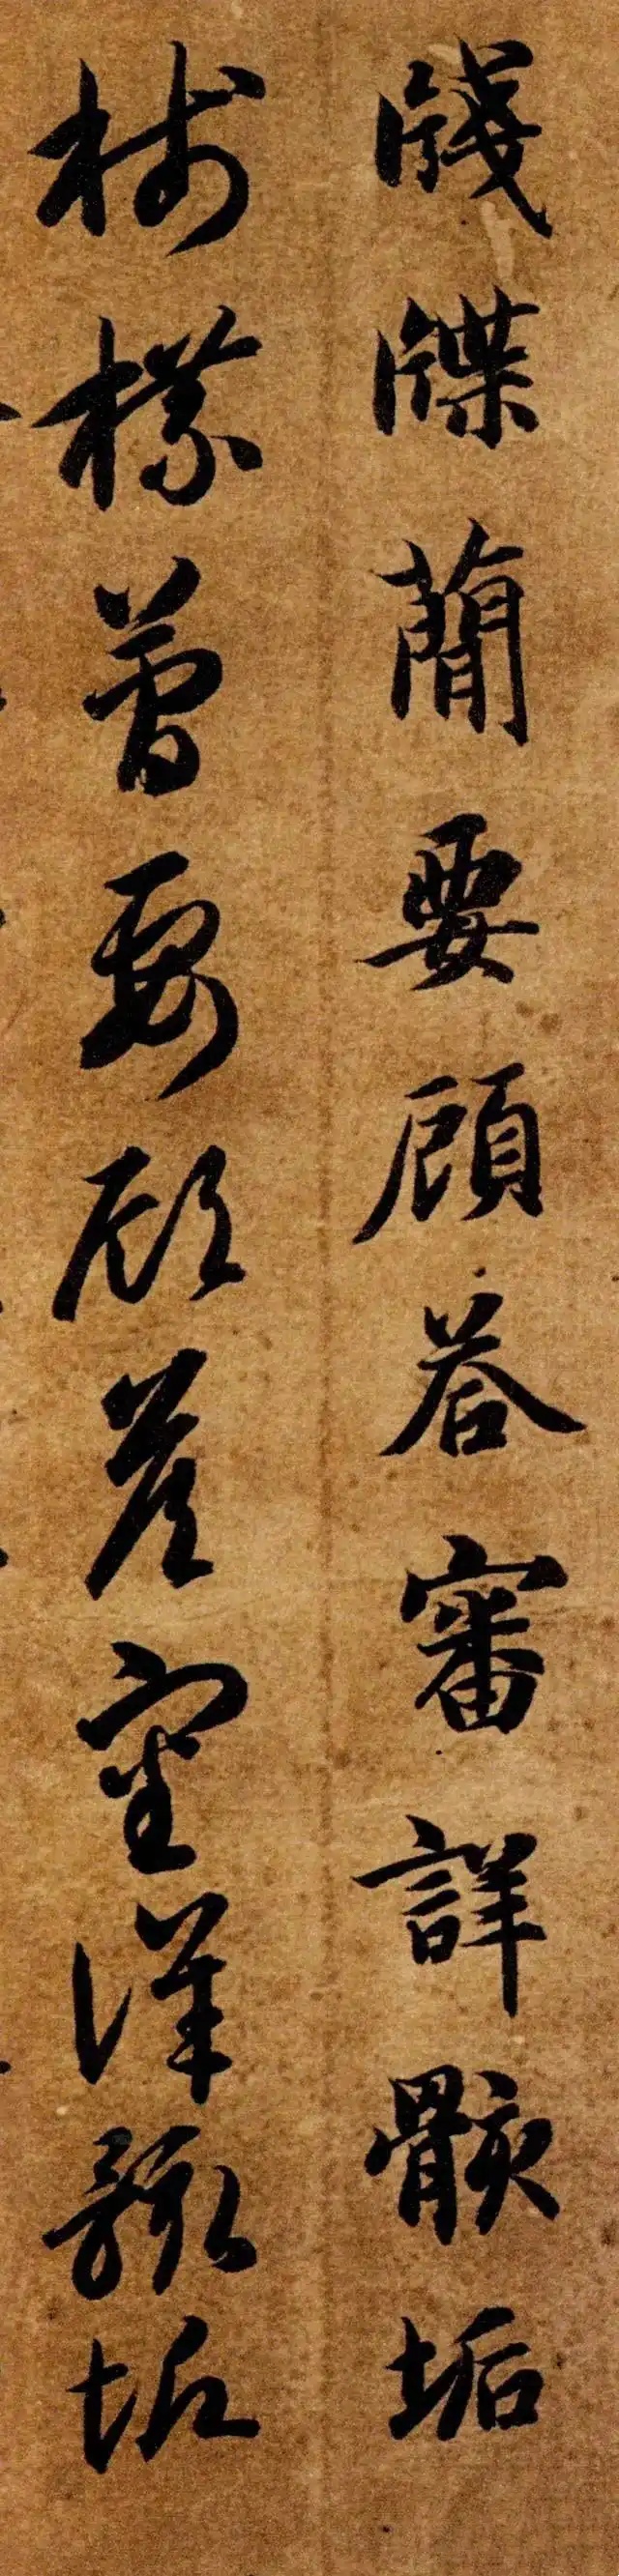 牋牒蕑要顧荅審詳骸垢
牋牒蕑要顧荅審詳骸垢